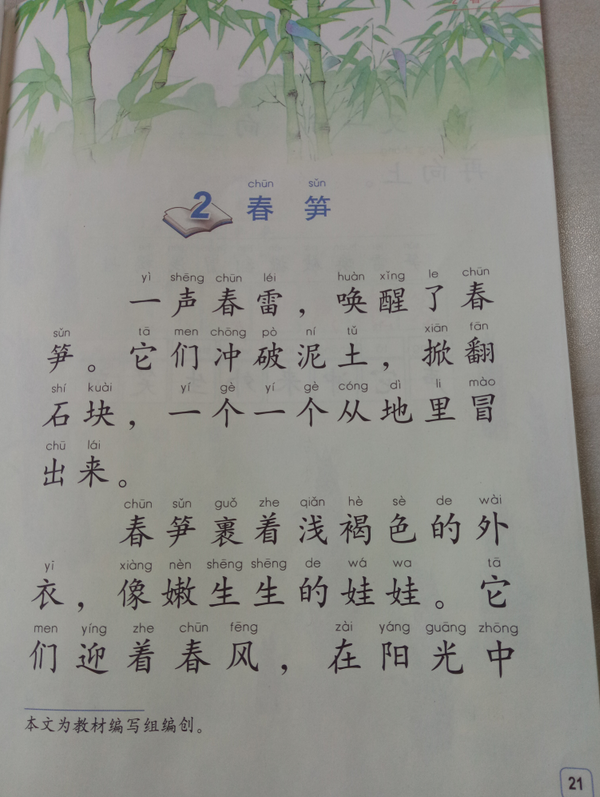 chūn sǔn
2 春 笋
yì shēng chūn léi huàn xǐng le chūn
一声春雷，唤醒了春
sǔn tā men chōng pò ní tǔ xiān fān
笋。它们冲破泥土，掀翻
shí kuài yí gè yí gè cóng dì li mào
石块，一个一个从地里冒
chū lái
出来。
chūn sǔn guǒ zhe qiǎn hè sè de wài
春笋裹着浅褐色的外
yī xiàng nèn shēng shēng de wá wa tā
衣，像嫩生生的娃娃。它
men yíng zhe chūn fēng zài yáng guāng zhōng
们迎着春风，在阳光中
本文为教材编写组编创。
21